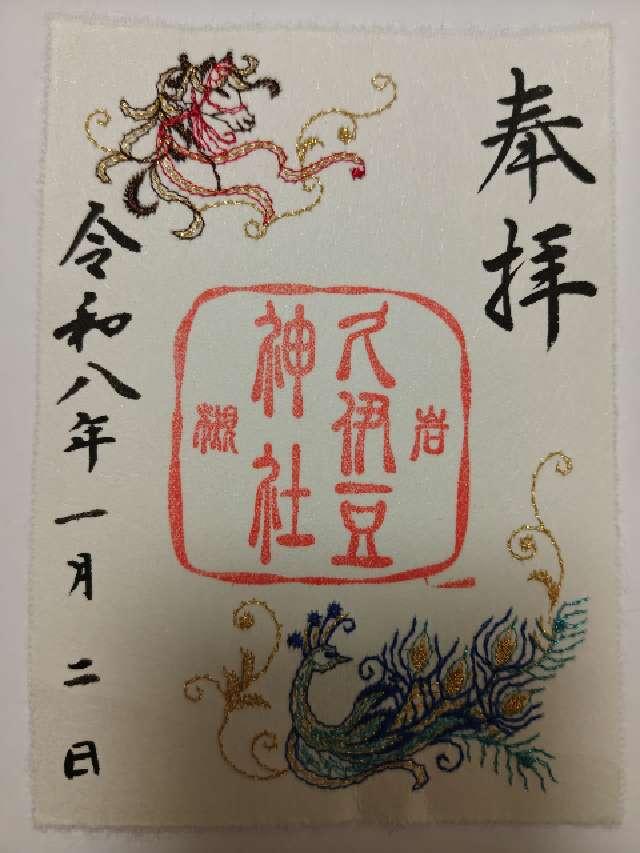 奉拝
岩槻
久伊豆
神社
令和八年一月二日